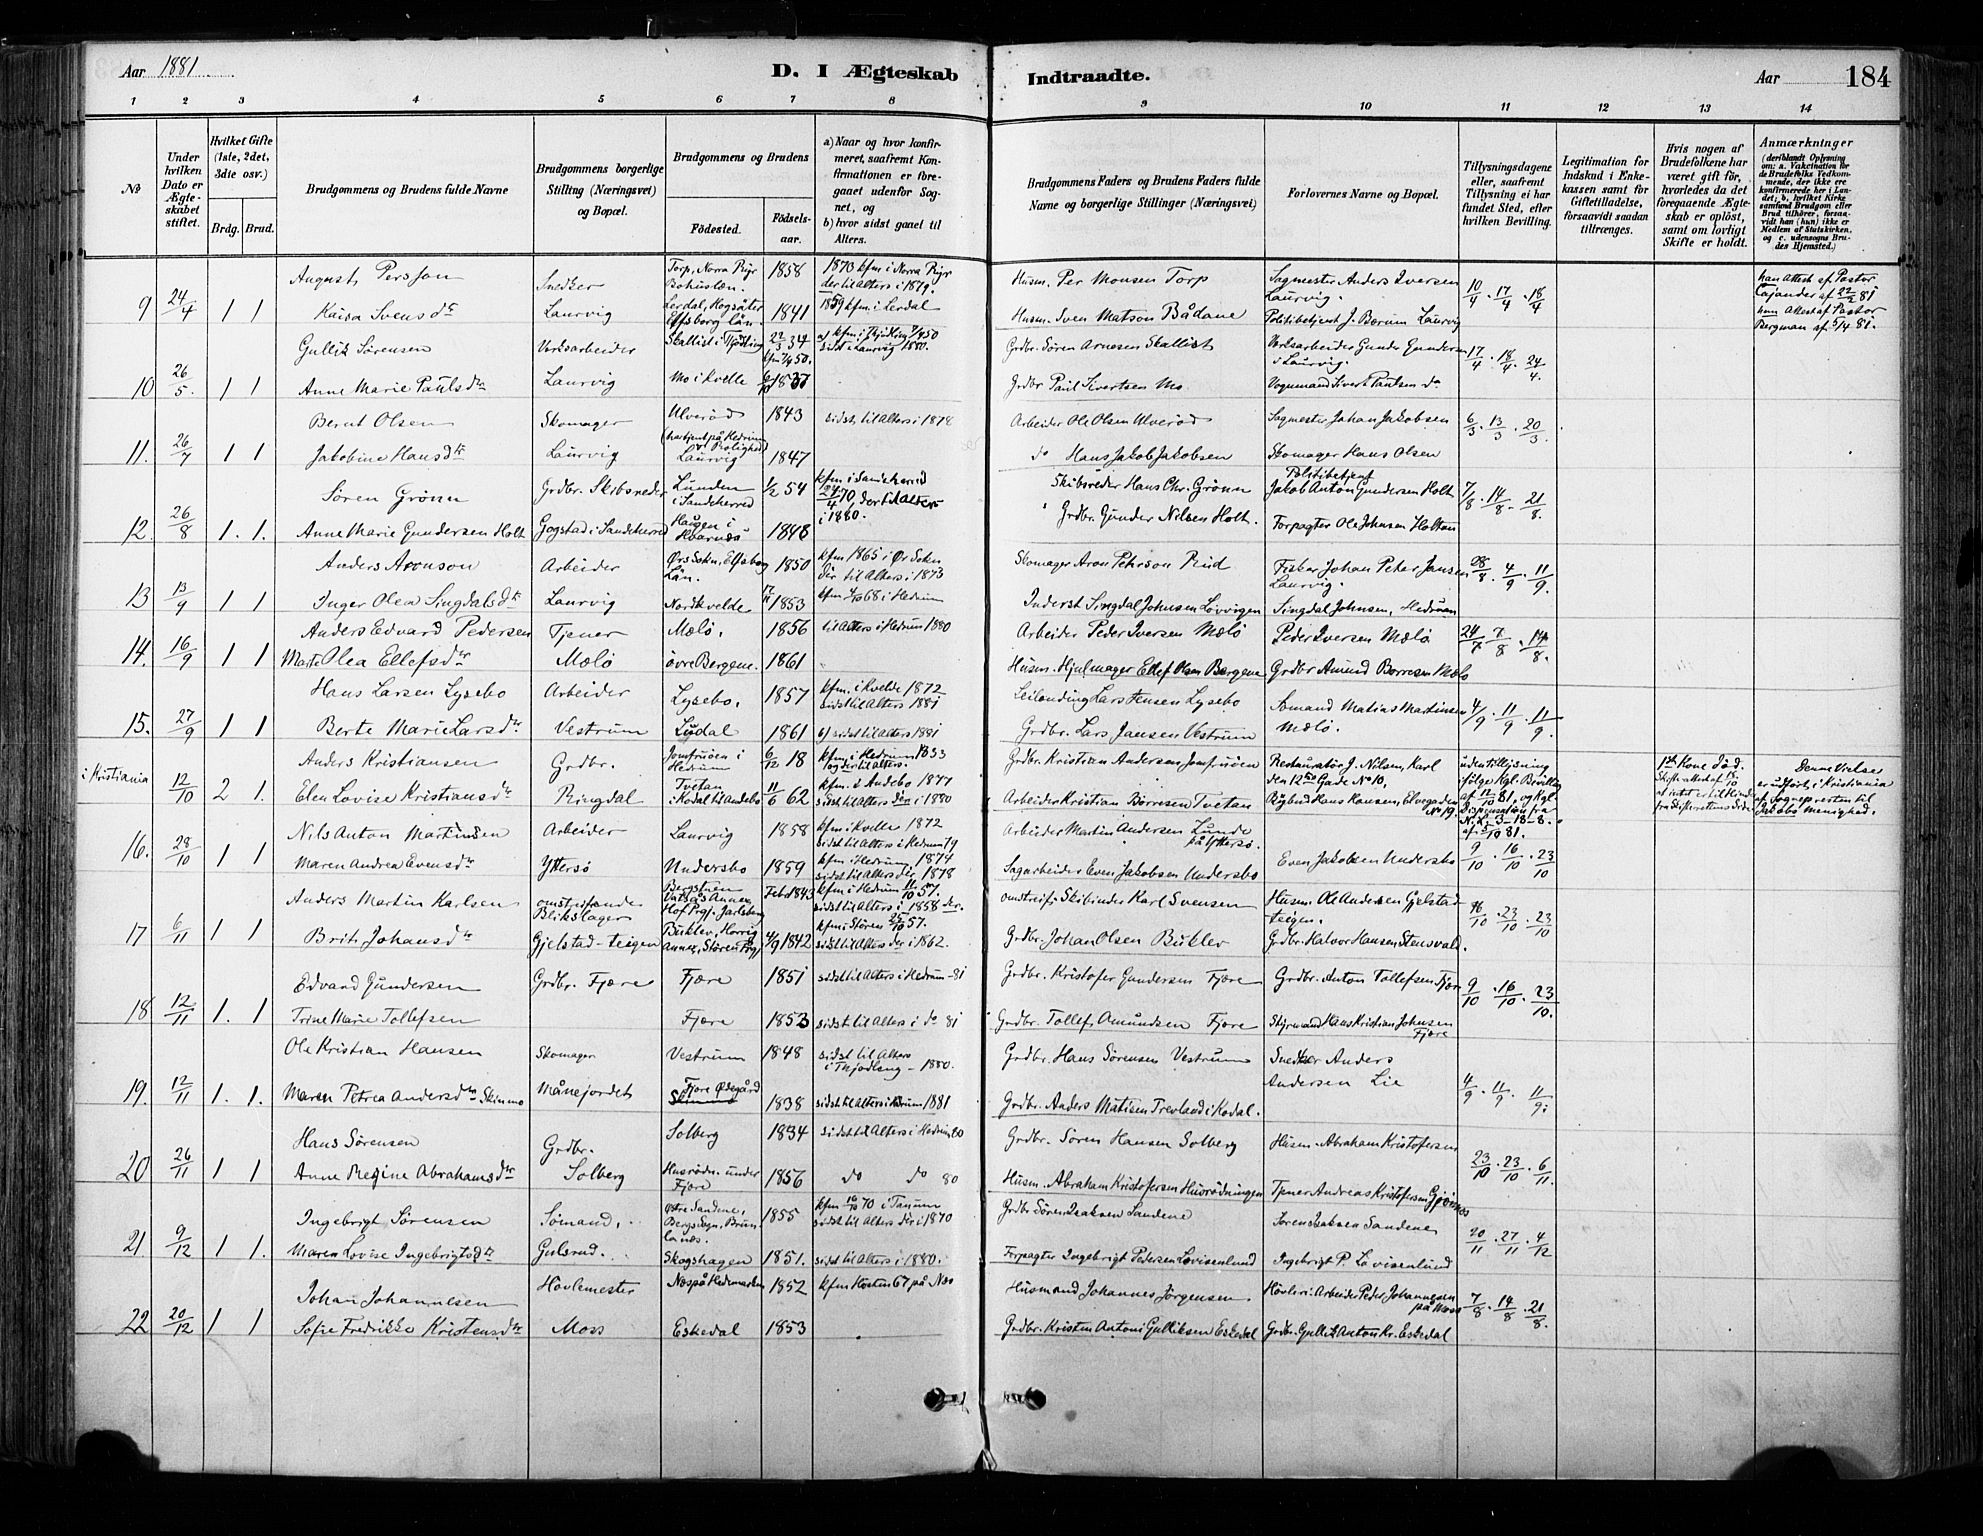 Aar 1881.
D. I Ægteskab
Indtraadte.
Aar
184
1 2 3 4 5 6 7 8 9 10 11 12 13 14
No
Under hvilken Dato er Ægteskabet stiftet.
Hvilket Gifte (1ste, 2det, 3die osv.)
Brdg. Brud.
Brudgommens og Brudens fulde Navne
Brudgommens borgerlige Stilling (Næringsvei) og Bopæl.
Brudgommens og Brudens
Fødested.
Fødselsaar.
a) Naar og hvor konfirmeret, saafremt Konfirmationen er foregaaet udenfor Sognet, og
b) hvor sidst gaaet til Alters.
Brudgommens Faders og Brudens Faders fulde Navne og borgerlige Stillinger (Næringsvei)
Forlovernes Navne og Bopæl.
Tillysningsdagene eller, saafremt Tillysning ei har fundet Sted, efter hvilken Bevilling.
Legitimation for Indskud i Enkekassen samt for Giftetilladelse, forsaavidt saadan tiltrænges.
Hvis nogen af Brudefolkene har været gift før, hvorledes da det foregaaende Ægteskab er opløst, samt om lovligt Skifte er holdt.
Anmærkninger (deriblandt Oplysning om: a. Vakcination for de Brudefolks Vedkommende, der ikke ere konfirmerede her i Landet; b. hvilket Kirkesamfund Brudgom eller Brud tilhører, forsaavidt han (hun) ikke er Medlem af Statskirken, og c. udensogns Brudes Hjemsted.)
9 24/4 1 1 August Persson Snedker Torp, Norra Rygr Bohuslæn. 1858 1870 kfm i Norra Rygr der til Alters i 1879. Husm. Per Monsen Torp Sagmester Anders Iversen Laurvig. 10/4 . 17/4 . 18/4 han Attest af Pastor Cajander af 22/2 81
Kaisa Svensdtr Laurvig Lerdal, Høgsäter Elfsborg län. 1841 1859 kfm. i Lerdal Husm. Sven Matson Bådane Politibetjent J. Bærum Laurvig hun Attest af Pastor Bergman af 5/4 81.
10 26/5. 1 1 Gullik Sørensen Verksarbeider Skallist i Tjødling 22/3 34 kfm i Tjødling sidst i Laurvig 1880. Grdbr. Søren Arnesen Skallist Verksarbeider Gunder Gundersen i Laurvig. 17/4 . 18/4 . 24/4.
Anne Marie Paulsdtr Laurvig Mo i Kvelle 1837 Grdbr Paul Sivertsen Mo. Vognmand Sivert Paulsen do
11. 26/7 1 1 Bernt Olsen Skomager Ulverød 1843 sidst til Alters i 1878 Arbeider Ole Olsen Ulverød Sagmester Johan Jakobsen 6/3 . 13/3 . 20/3.
Jakobine Hansdtr Laurvig Laurvig 1847 do Hans Jakob Jakobsen Skomager Hans Olsen
12. 26/8 1. 1. Søren Grønn Grdbr. Skibsreder Lunden i Sandeherred 1/2 54 kfm i Sandeherred 24/4 70 der til Alters i 1880. Skibsreder Hans Chr. Grønn Politibetjent Jakob Anton Gundersen Holt 7/8 . 14/8 . 21/8.
Anne Marie Gundersen Holt Gogstad i Sandeherred Haugen i Hvarnæs 1848 Grdbr. Gunder Nilsen Holt. Forpagter Ole Johnsen Holtan
13 13/9 1 1 Anders Aronson Arbeider Ørs Sokn, Elfsborg Län. 1850 kfm 1865 i Ør Sokn der til Alters i 1873 Skomager Aron Pehrson Rud Fisker Johan Peter Jansen Laurvig. 28/8 . 4/9 . 11/9.
Inger Olea Singdalsdtr Laurvig Nordkvelde 1853 kfm 68 i Hedrum Inderst Singdal Johnsen Løvvigen Singdal Johnsen, Hedrum
14. 16/9 1 1 Anders Edvard Pedersen Tjener Mælø. 1856 til Alters i Hedrum 1880 Arbeider Peder Iversen Mælø Peder Iversen Mælø 24/7 . 7/8 . 14/8.
Marte Olea Ellefsdtr Mælø øvre Bergene. 1861 Husm. Hjulmager Ellef Olsen Bergene Grdbr Amund Borresen Mælø
15. 27/9 1 1 Hans Larsen Lysebo Arbeider Lysebo. 1857 kfm. i Kvelde 1872 sidst til Alters 1881 Leilænding Lars Jensen Lysebo Sømand Matias Martinsen Mælø. 4/9 . 11/9 . 11/9.
Berte Marie Larsdtr Vestrum Lysdal 1861 sidst til Alters 1881 Grdbr. Lars Jansen Vestrum
i Kristiania 12/10 2 1. Anders Kristiansen Grdbr. Jomfruöen i Hedrum 6/12 18 kfm. i Hedrum 1833 og der til Alters. Grdbr. Kristian Andersen Jomfruöen Restauratør J. Nilsen, Karl den 12tes Gade No 10. uden tillysning ifølge Kgl. Bevilling af 11/10 81, og Kgl. Dispensation fra N. L. 3-18-8. af 5/10 81. 1ste Kone død. Denne Vielse er udført i Kristiania af Sognepresten til Jakobs Menighed.
Elen Lovise Kristiansdtr Ringdal Tvetan i Kodal til Andebo 11/6 62 kfm. i Andebo 1877 sidst til Alters der i 1880 Arbeider Kristian Børresen Tvetan Rigbud Hans Hansen, Elvegaden No 19.
16. 28/10 1 1 Nils Anton Martinsen Arbeider Laurvig 1858 kfm i Kvelle 1872 sidst til Alters i Hedrum 79 Arbeider Martin Andersen Lunde på Yttersø. 9/10 . 16/10 . 23/10
Maren Andrea Evensdtr Yttersø Undersbo 1859 kfm. i Hedrum 1874 sidst til Alters der 1878 Sagarbeider Even Jakobsen Undersbo Even Jakobsen Undersbo
17 6/11 1 1 Anders Martin Karlsen omstreifende Blikslager Vatsås Annex Hof Prgj. Jarlsberg Febr 1843 kfm i Hedrum 11/10 57. sidst til Alters i 1858 der. omstreif. Skibinder Karl Svensen Husm. Ole Andersen Gjelstad teigen. 16/10 . 23/10 . 23/10
Brit Johansdtr Gjelstad-teigen Buklev, Horrig Annex, Støren Prgj. 4/9 1842 kfm i Støren 25/10 57. sidst til Alters der i 1862. Grdbr. Johan Olsen Buklev Grdbr. Halvor Hansen Stensvald.
18 12/11 1. 1 Edvard Gundersen Grdbr. Fjære Fjære 1851 sidst til Alters i Hedrum - 81 Grdbr. Kristofer Gundersen Fjære Grdbr. Anton Tollefsen Fjære 9/10 . 16/10 . 23/10.
Trine Marie Tollefsen Fjære 1853 sidst til Alters i do 81 Grdbr. Tollef Amundsen Fjære Styrmand Hans Kristian Johnsen Fjære
19. 12/11 1. 1. Ole Kristian Hansen Skomager Vestrum 1848 sidst til Alters i Thjodling - 1880. Grdbr. Hans Sørensen Vestrum Snedker Anders Andersen Lie 4/9 . 11/9 . 11/9.
Maren Petrea Andersdtr Skinmo Månejordet Fjære Ødegård 1838 sidst til Alters i Hedrum 1881 Grdbr. Anders Matisen Trevland i Kodal.
20 26/11 1 1 Hans Sørensen Grdbr. Solberg 1834 sidst til Alters i Hedrum 80 Grdbr. Søren Hansen Solberg Husm. Abraham Kristofersen 23/10 . 23/10 . 6/11.
Anne Regine Abrahamsdtr Solberg Husrødn. under Fjære 1856 do do 80 Husm. Abraham Kristofersen Husrødningen Tjener Andreas Kristofersen Gjønnes
21. 9/12 1 1. Ingebrigt Sørensen Sømand, Østre Sandene, Bergs Sogn, Brunlanæs. 1855 kfm 16/10 70 i Tanum sidst til Alters der i 1870 Grdbr Søren Isaksen Sandene Søren Isaksen Sandene 20/11 . 27/11 . 4/12
Maren Lovise Ingebrigtsdtr Gulsrud. Skogshagen 1851. sidst til Alters i 1880. Forpagter Ingebrigt Pedersen Lovisenlund Ingebrigt P. Lovisenlund
22 20/12 1 1 Johan Johannesen Høvlemester Næs på Hedemarken 1852 kfm Høsten 67 på Næs Husmand Johannes Jørgensen Høvleri-Arbeider Peder Johannesen på Moss 7/8 . 14/8 . 21/8.
Sofie Fredrikke Kristensdtr Moss Eskedal 1853 Grdbr. Kristen Antoni Gulliksen Eskedal Grdbr. Gullik Anton Kr. Eskedal